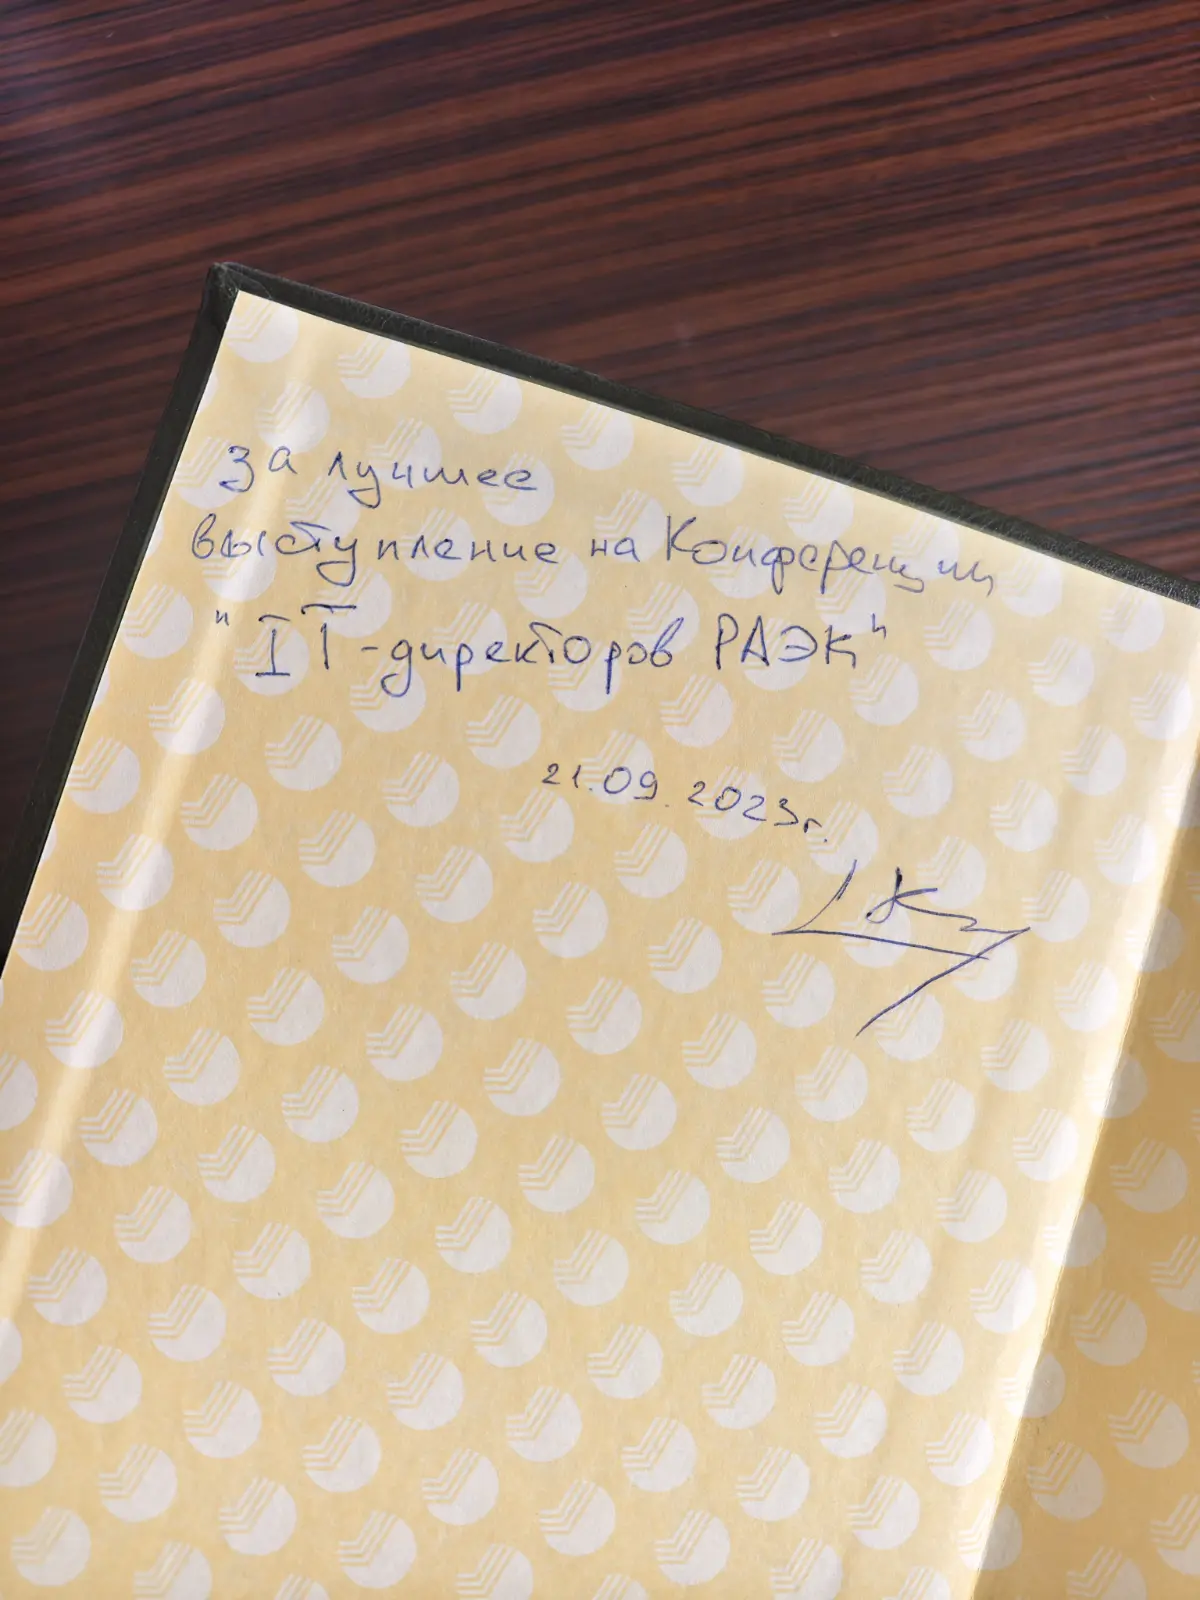 за лучшее
выступление на Конференции
"IT-директоров РАЭК"
21.09.2023г.